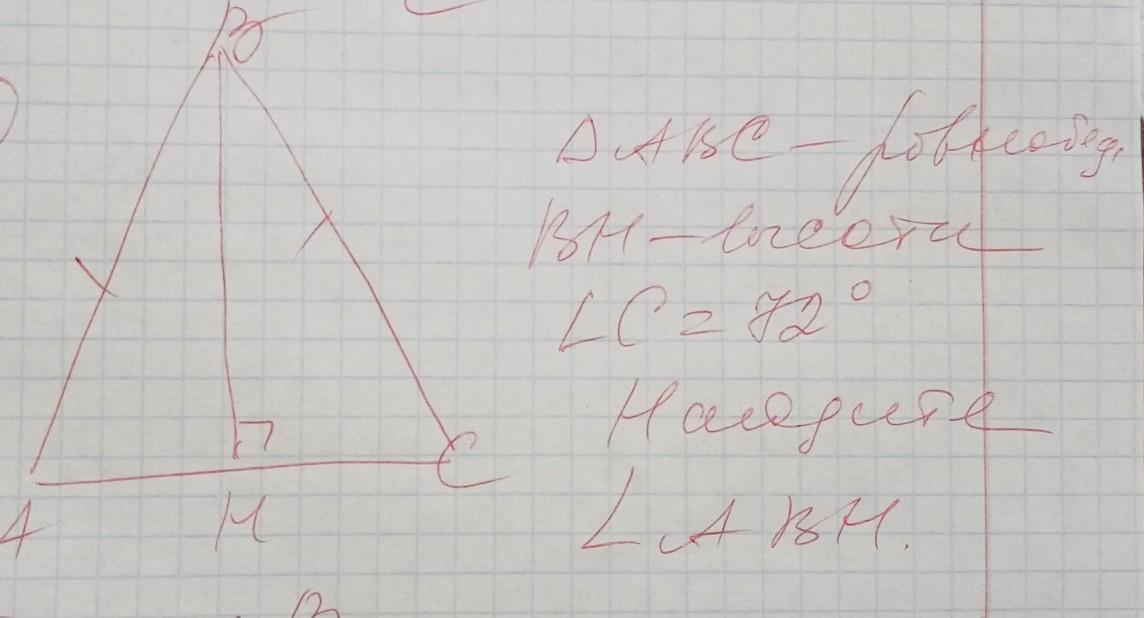 B
A
H
C
△ABC – равнобед.
BH – высота
∠C = 72°
Найдите
∠ABH.
B